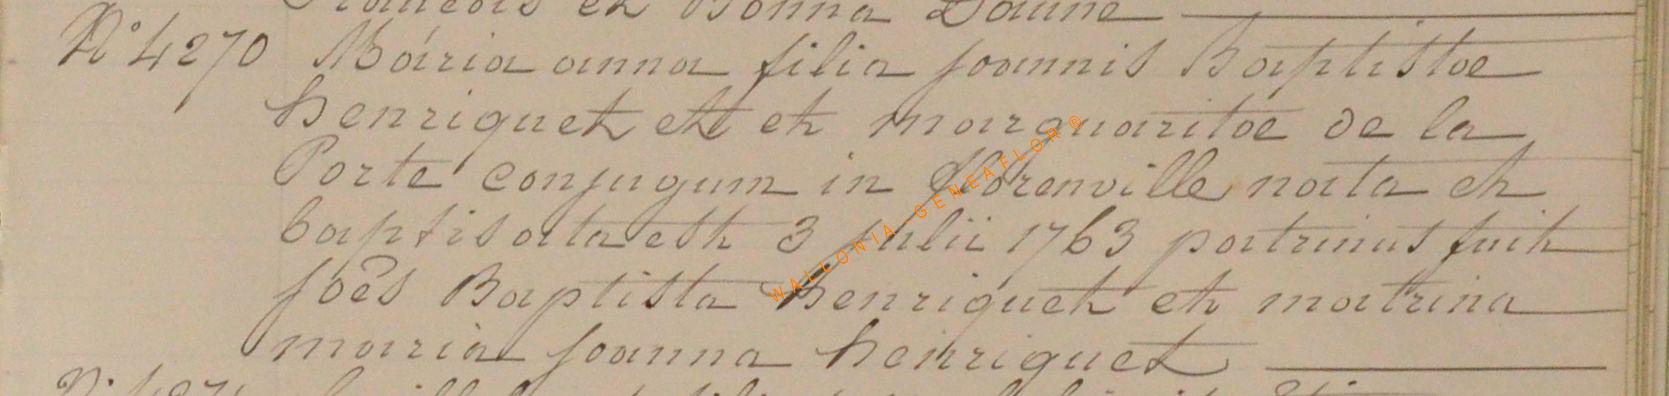 François et Bonna Daune
N° 4270 Maria anna filia joannis Baptistae
henriquet et et marguaritae de la
Porte conjugum in florenville nata et
baptisata est 3 julii 1763 patrinus fuit
joês Baptista henriquet et matrina
maria joanna henriquet
WALLONIA GENEAFLOR®